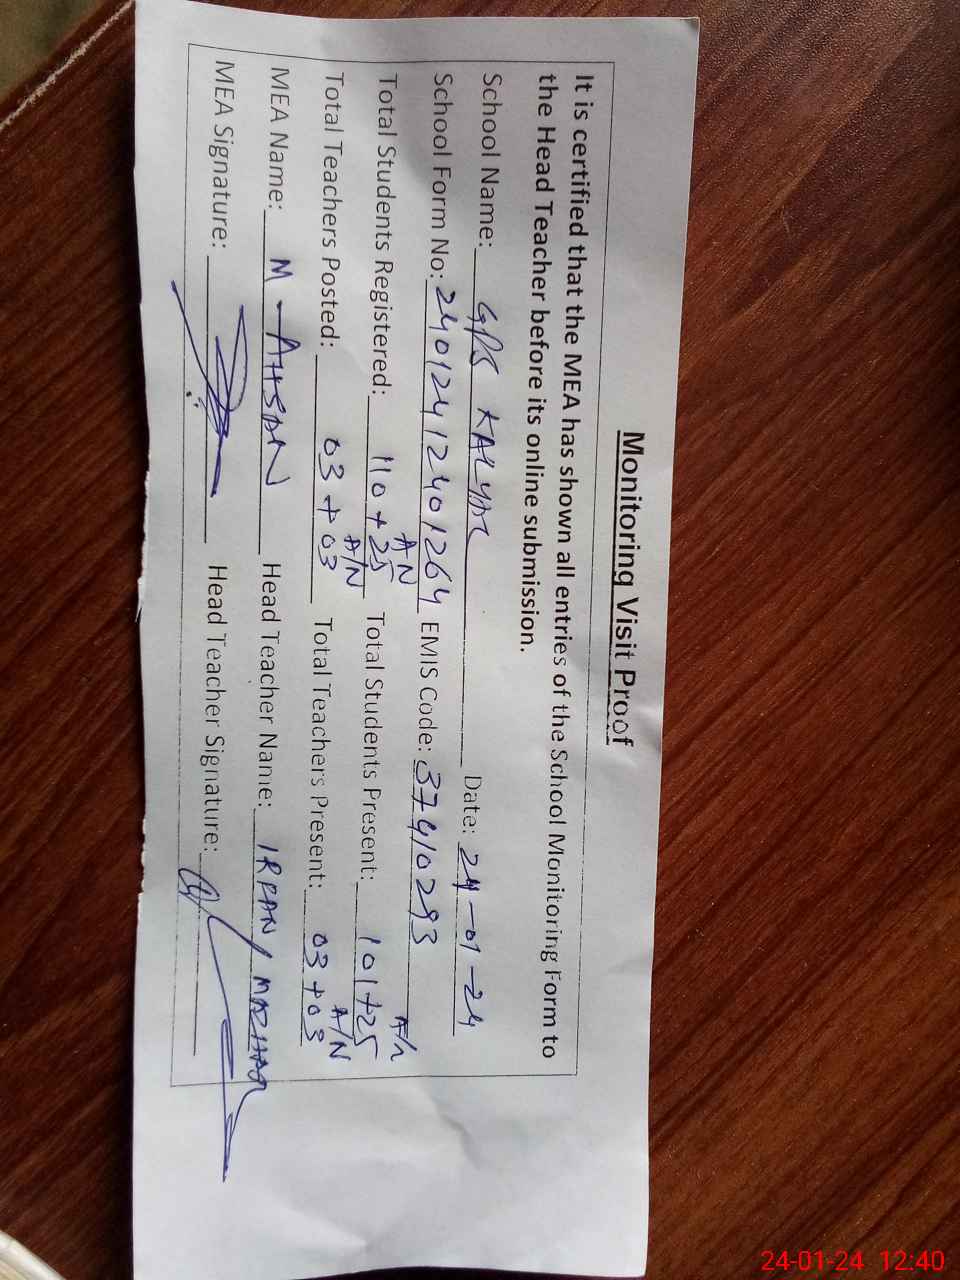 Monitoring Visit Proof
It is certified that the MEA has shown all entries of the School Monitoring Form to
the Head Teacher before its online submission.
School Name: GPS KALYAR Date: 24-01-24
School Form No: 24012412401264 EMIS Code: 37410293
A/N A/N
Total Students Registered: 110+25 Total Students Present: 101+25
A/N A/N
Total Teachers Posted: 03+03 Total Teachers Present: 03+03
MEA Name: M-AHSAN Head Teacher Name: IRFAN/MAZHAR
MEA Signature: Head Teacher Signature:
24-01-24 12:40